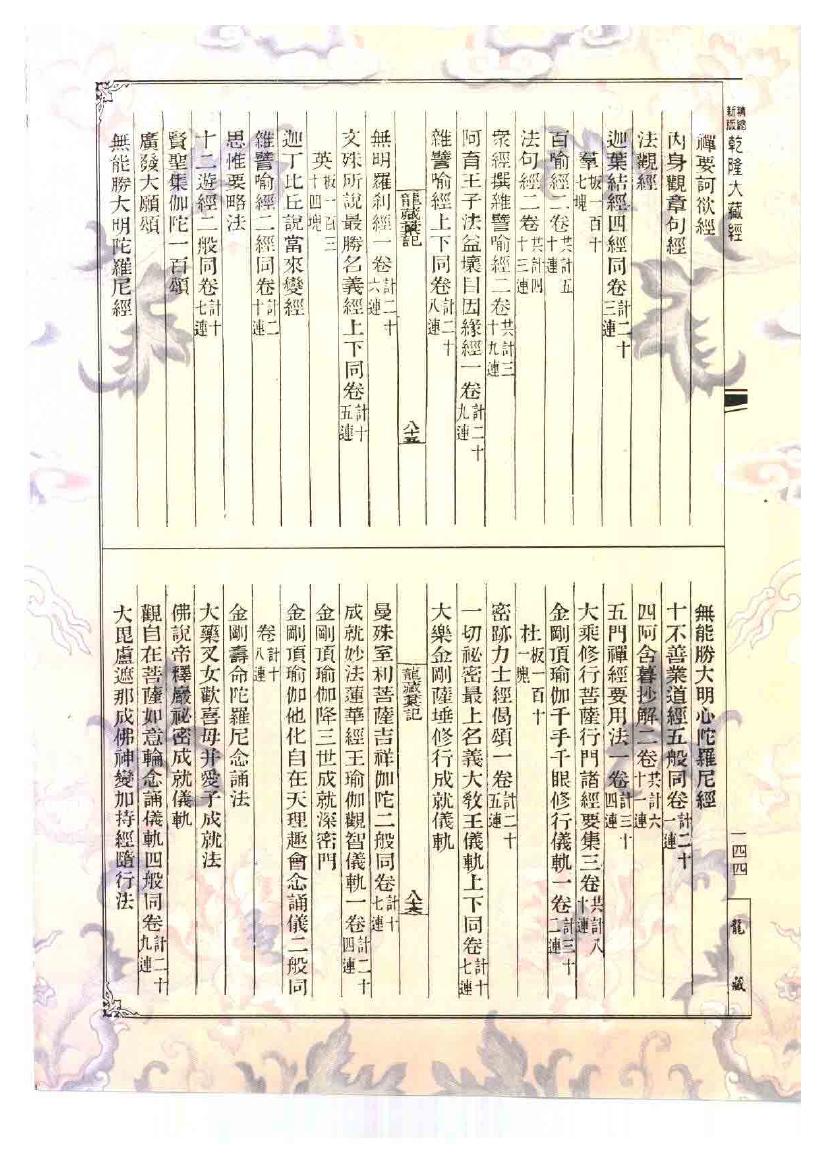 精縮新版乾隆大藏經
禪要訶欲經
內身觀章句經
法觀經
迦葉結經四經同卷計二十三連
羣板一百十七塊
百喻經二卷共計五十連
法句經二卷共計四十三連
衆經撰雜譬喻經二卷共計三十九連
阿育王子法益壞目因緣經一卷計二十九連
雜譬喻經上下同卷計二十八連
龍藏彙記
八十五
無明羅刹經一卷計二十六連
文殊所說最勝名義經上下同卷計十五連
英板一百三十四塊
迦丁比丘說當來變經
雜譬喻經二經同卷計二十連
思惟要略法
十二遊經二般同卷計十七連
賢聖集伽陀一百頌
廣發大願頌
無能勝大明陀羅尼經
無能勝大明心陀羅尼經
十不善業道經五般同卷計二十一連
四阿含暮抄解二卷共計六十一連
五門禪經要用法一卷計三十四連
大乘修行菩薩行門諸經要集三卷共計八十連
金剛頂瑜伽千手千眼修行儀軌一卷計三十二連
杜板一百十一塊
密跡力士經偈頌一卷計二十五連
一切祕密最上名義大教王儀軌上下同卷計十七連
大樂金剛薩埵修行成就儀軌
龍藏彙記
八十六
曼殊室利菩薩吉祥伽陀二般同卷計十七連
成就妙法蓮華經王瑜伽觀智儀軌一卷計二十四連
金剛頂瑜伽降三世成就深密門
金剛頂瑜伽他化自在天理趣會念誦儀二般同
卷計十八連
金剛壽命陀羅尼念誦法
大藥叉女歡喜母并愛子成就法
佛說帝釋巖祕密成就儀軌
觀自在菩薩如意輪念誦儀軌四般同卷計二十九連
大毘盧遮那成佛神變加持經隨行法
一四四
龍藏